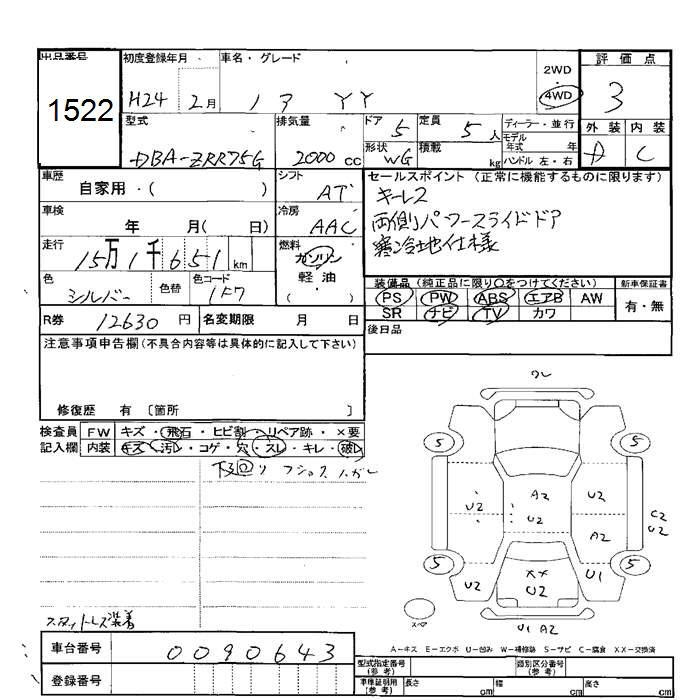 出品番号
1522
初度登録年月
H24 2月
車名・グレード
ノア YY
2WD
・
4WD
評価点
3
外装 内装
A C
型式
DBA-ZRR75G
排気量
2000 cc
ドア 5
定員 5人
形状 WG
積載 kg
ディーラー・並行
モデル
年式 年
ハンドル 左・右
車歴
自家用・( )
シフト
AT
車検
年 月( 日)
冷房
AAC
走行
15万1千651 km
燃料
ガソリン
軽・油
( )
色
シルバー
色替
色コード
1F7
セールスポイント (正常に機能するものに限ります)
キーレス
両側パワースライドドア
寒冷地仕様
装備品 (純正品に限り○をつけてください)
PS PW ABS エアB AW
SR ナビ TV カワ
新車保証書
有・無
R券 12630 円
名変期限 月 日
後日品
注意事項申告欄(不具合内容等は具体的に記入して下さい)
修復歴 有 [箇所 ]
検査員
記入欄
FW キズ・飛石・ヒビ割・リペア跡・×要
内装 キズ・汚レ・コゲ・穴・スレ・キレ・破レ
下回り
ワレ
5 5
U2 A2 U2
U2
A2
C2
U2
5 5
U2 XX U1
U2
スペア
U1 A2
スタットレス装着
A-キス E-エクボ U-凹み W-補修跡 S-サビ C-腐食 XX-交換済
車台番号
0090643
登録番号
型式指定番号
(参考)
類別区分番号
(参考)
車庫証明用
(参考)
長さ cm
幅 cm
高さ cm